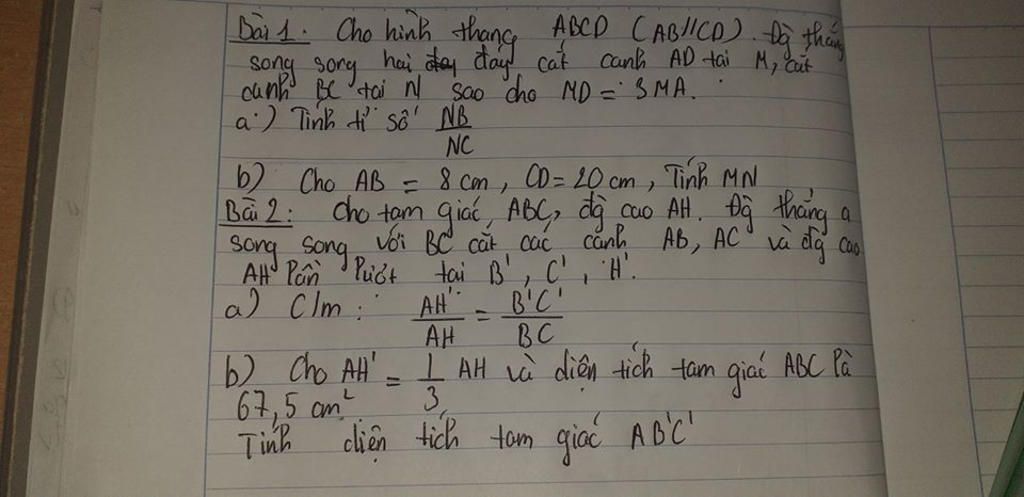 Bài 1. Cho hình thang ABCD (AB//CD). Đg thẳng
song song hai đáy cắt cạnh AD tại M, cắt
cạnh BC tại N sao cho MD = 3MA.
a.) Tính tỉ số NB/NC
b) Cho AB = 8 cm, CD = 20 cm, Tính MN
Bài 2: Cho tam giác ABC, đg cao AH. Đg thẳng a
song song với BC cắt các cạnh AB, AC và đg cao
AH lần lượt tại B', C', H'.
a) C/m: AH'/AH = B'C'/BC
b) Cho AH' = 1/3 AH và diện tích tam giác ABC là
67,5 cm²
Tính diện tích tam giác AB'C'